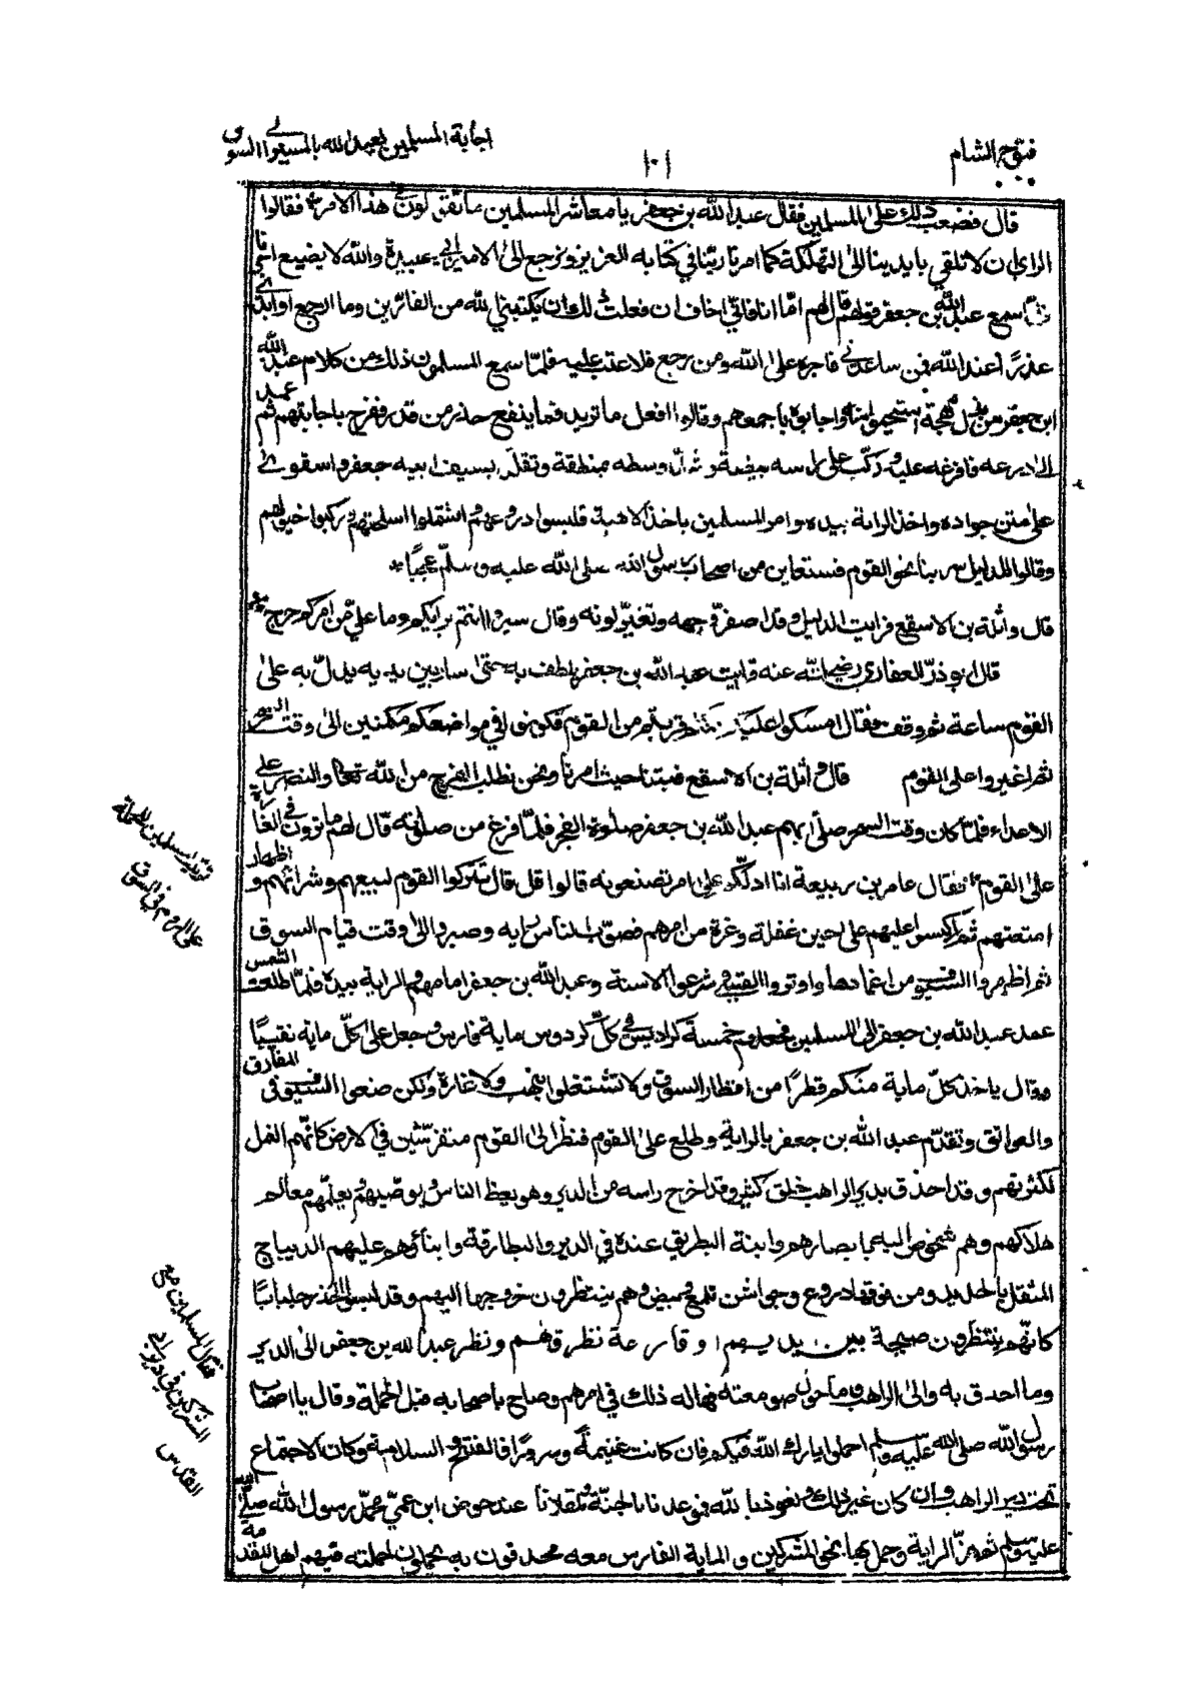 فتوح الشام
١٠١
اجابة المسلمين لعبد الله بالمسير الى السوق
قال فضعب ذلك على المسلمين فقال عبد الله بن جعفر يا معاشر المسلمين ما تقولون في هذا الامر فقالوا
الراي ان لا تلقي بايدينا الى التهلكة كما امرنا ربنا في كتابه العزيز ونرجع الى الامير ابي عبيدة والله لا يضيع اجرنا
سمع عبد الله بن جعفر قولهم قال لهم اما انا فاني اخاف ان فعلت ذلك ان يكتبني الله من الفارين وما ارجع او ابدي
عذرًا عند الله فمن ساعدني فاجره على الله ومن رجع فلا عتب عليه فلما سمع المسلمون ذلك من كلام عبد الله
ابن جعفر من بذل مهجته استحيوا منه واجابوه باجمعهم وقالوا افعل ما تريد فما ينفع حذر من قدر ففرح باجابتهم ثم عمد
الى درعه فافرغه عليه وركب على راسه بيضة وشد وسطه بمنطقة وتقلد بسيف ابيه جعفر واستوى
على متن جواده واخذ الراية بيده وامر المسلمين باخذ الاهبة فلبسوا دروعهم واشتملوا اسلحتهم وركبوا خيولهم
وقالوا للدليل سر بنا نحو القوم فستعاين من اصحاب رسول الله صلى الله عليه وسلم عجبًا *
قال واثلة بن الاسقع فرايت الدليل وقد اصفر وجهه وتغير لونه وقال سيروا انتم برايكم وما علي من امركم حرج
قال ابو ذر الغفاري رضي الله عنه فرايت عبد الله بن جعفر يلطف به حتى سار بين يديه يدل به على
القوم ساعة ثم وقف وقال امسكوا عليكم قربتم من القوم فكونوا في مواضعكم مكمنين الى وقت السحر
ثم اغيروا على القوم قال واثلة بن الاسقع فبتنا حيث امرنا ونحن نطلب الفرج من الله تعالى والنصر على
الاعداء فلما كان وقت السحر صلى بهم عبد الله بن جعفر صلوة الفجر فلما فرغ من صلاته قال لهم ما ترون في الغارة
على القوم فقال عامر بن ربيعة انا ادلكم على امر تصنعونه قالوا قل قال تتركوا القوم لبيعهم وشرائهم واظهار
امتعتهم ثم اكبسوا عليهم على حين غفلة وغرة من امرهم فصوب الناس رايه وصبروا الى وقت قيام السوق
ثم اظهروا السيوف من اغمادها واوتروا القسي وشرعوا الاسنة وعبد الله بن جعفر امامهم والراية بيده فلما طلعت الشمس
عمد عبد الله بن جعفر الى المسلمين فجعلهم خمسة كراديس في كل كردوس ماية فارس وجعل على كل ماية نقيبًا
وقال ياخذ كل ماية منكم قطرًا من اقطار السوق ولا تشتغلوا بنهب ولا غارة ولكن ضعوا السيوف في المفارق
والعواتق وتقدم عبد الله بن جعفر بالراية وطلع على القوم فنظر الى القوم متفرشين في الارض كانهم النمل
لكثرتهم وقد احدق بدير الراهب خلق كثير وقد اخرج راسه من الدير وهو يعظ الناس ويوصيهم ويعلمهم معالم
هلاكهم وهم شخوص اليه بابصارهم وابنة البطريق عنده في الدير والبطارقة وابناؤهم عليهم الديباج
المثقل بالحديد ومن فوقه دروع وجواشن تلمع وبيض وهم ينتظرون خروجها اليهم وقد لبسوا الحذر جلبابًا
كانهم ينتظرون صيحة بين يديهم او قارعة نظر فوقهم ونظر عبد الله بن جعفر الى الدير
وما احدق به والى الراهب وما حول صومعته فهاله ذلك في امرهم وصاح باصحابه قبل الحملة وقال يا اصحاب
رسول الله صلى الله عليه وسلم احملوا بارك الله فيكم فان كانت غنيمة وسرورًا فالفتح والسلامة وكان الاجتماع
تحت دير الراهب وان كان غير ذلك ونعوذ بالله فموعدنا الجنة ونلتقي عند حوض ابن عمي محمد رسول الله صلى الله
عليه وسلم ثم هز الراية وحمل بها نحو المشركين والماية الفارس معه محدقون به يحملون لحملته فيهم اهل التقدمة
المسلمين للحملة
على الروم في السوق
قتال المسلمين مع
المشركين في دير
القدس